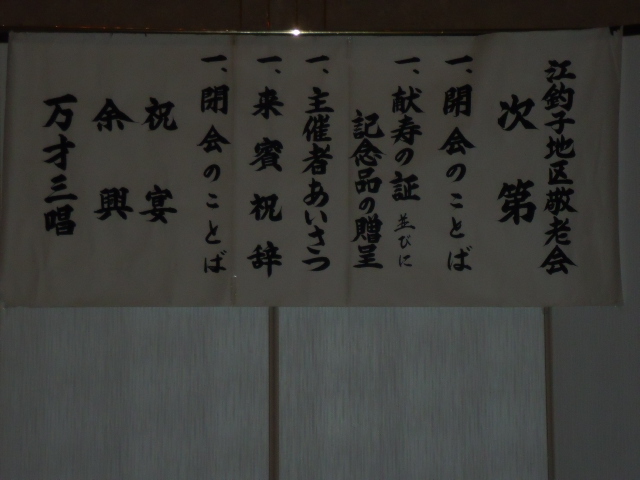 江釣子地区敬老会
次第
一、開会のことば
一、献寿の証 並びに
記念品の贈呈
一、主催者あいさつ
一、来賓祝辞
一、閉会のことば
祝宴
余興
万才三唱